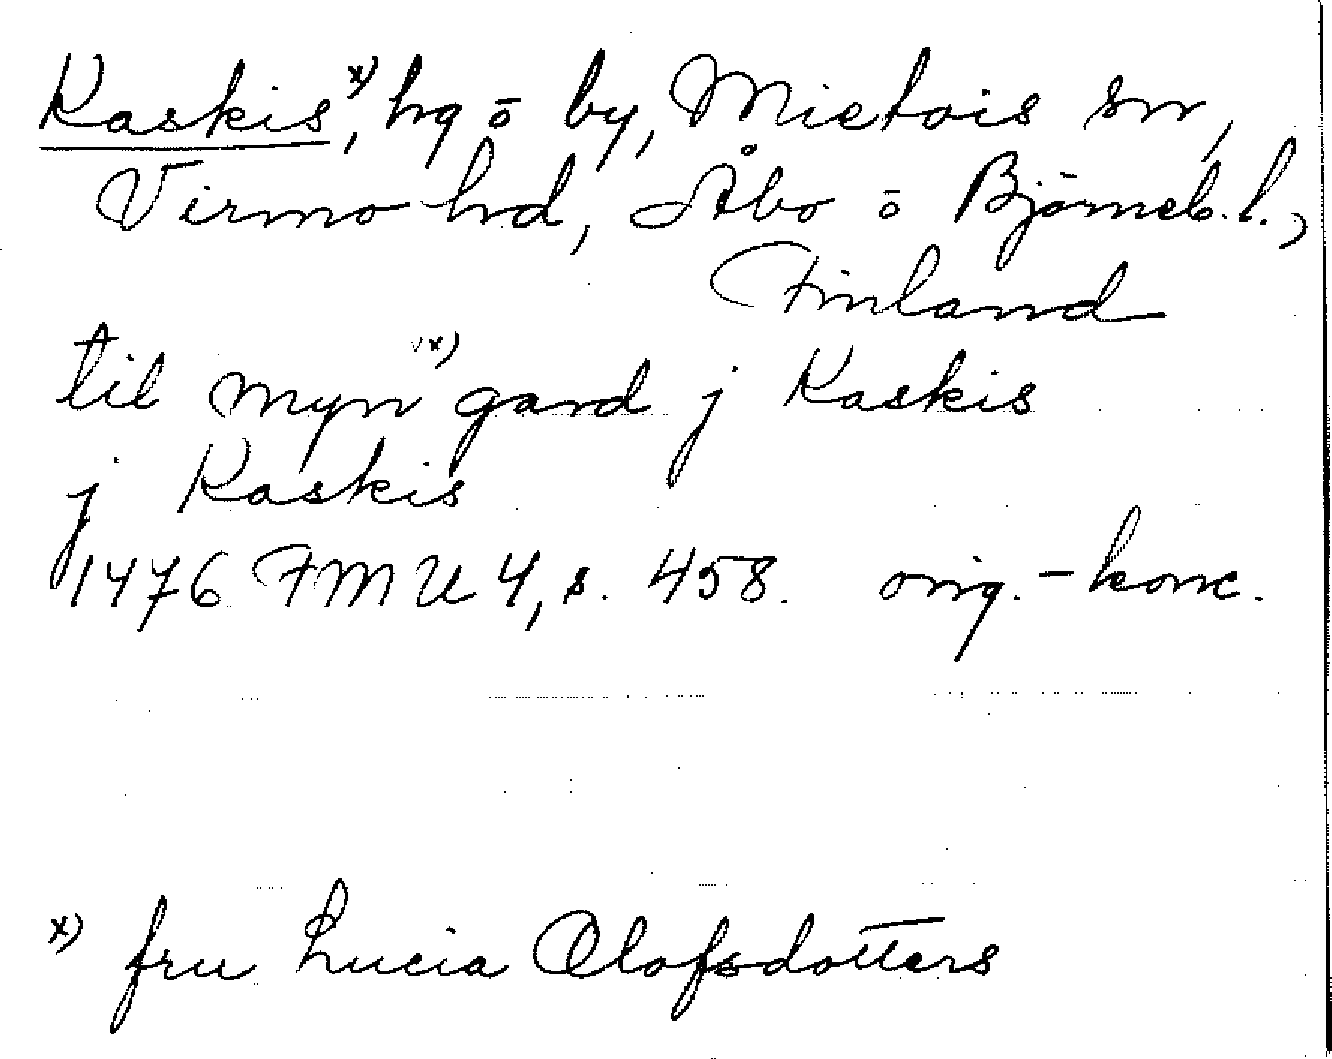 Kaskis,x) hg o by, Mietois sn,
Virmo hd, Åbo o Björneb. l.,
Finland
til myn x) gard j Kaskis
j Kaskis
1476 FMU 4, s. 458. orig.-konc.
x) fru Lucia Olofsdotters